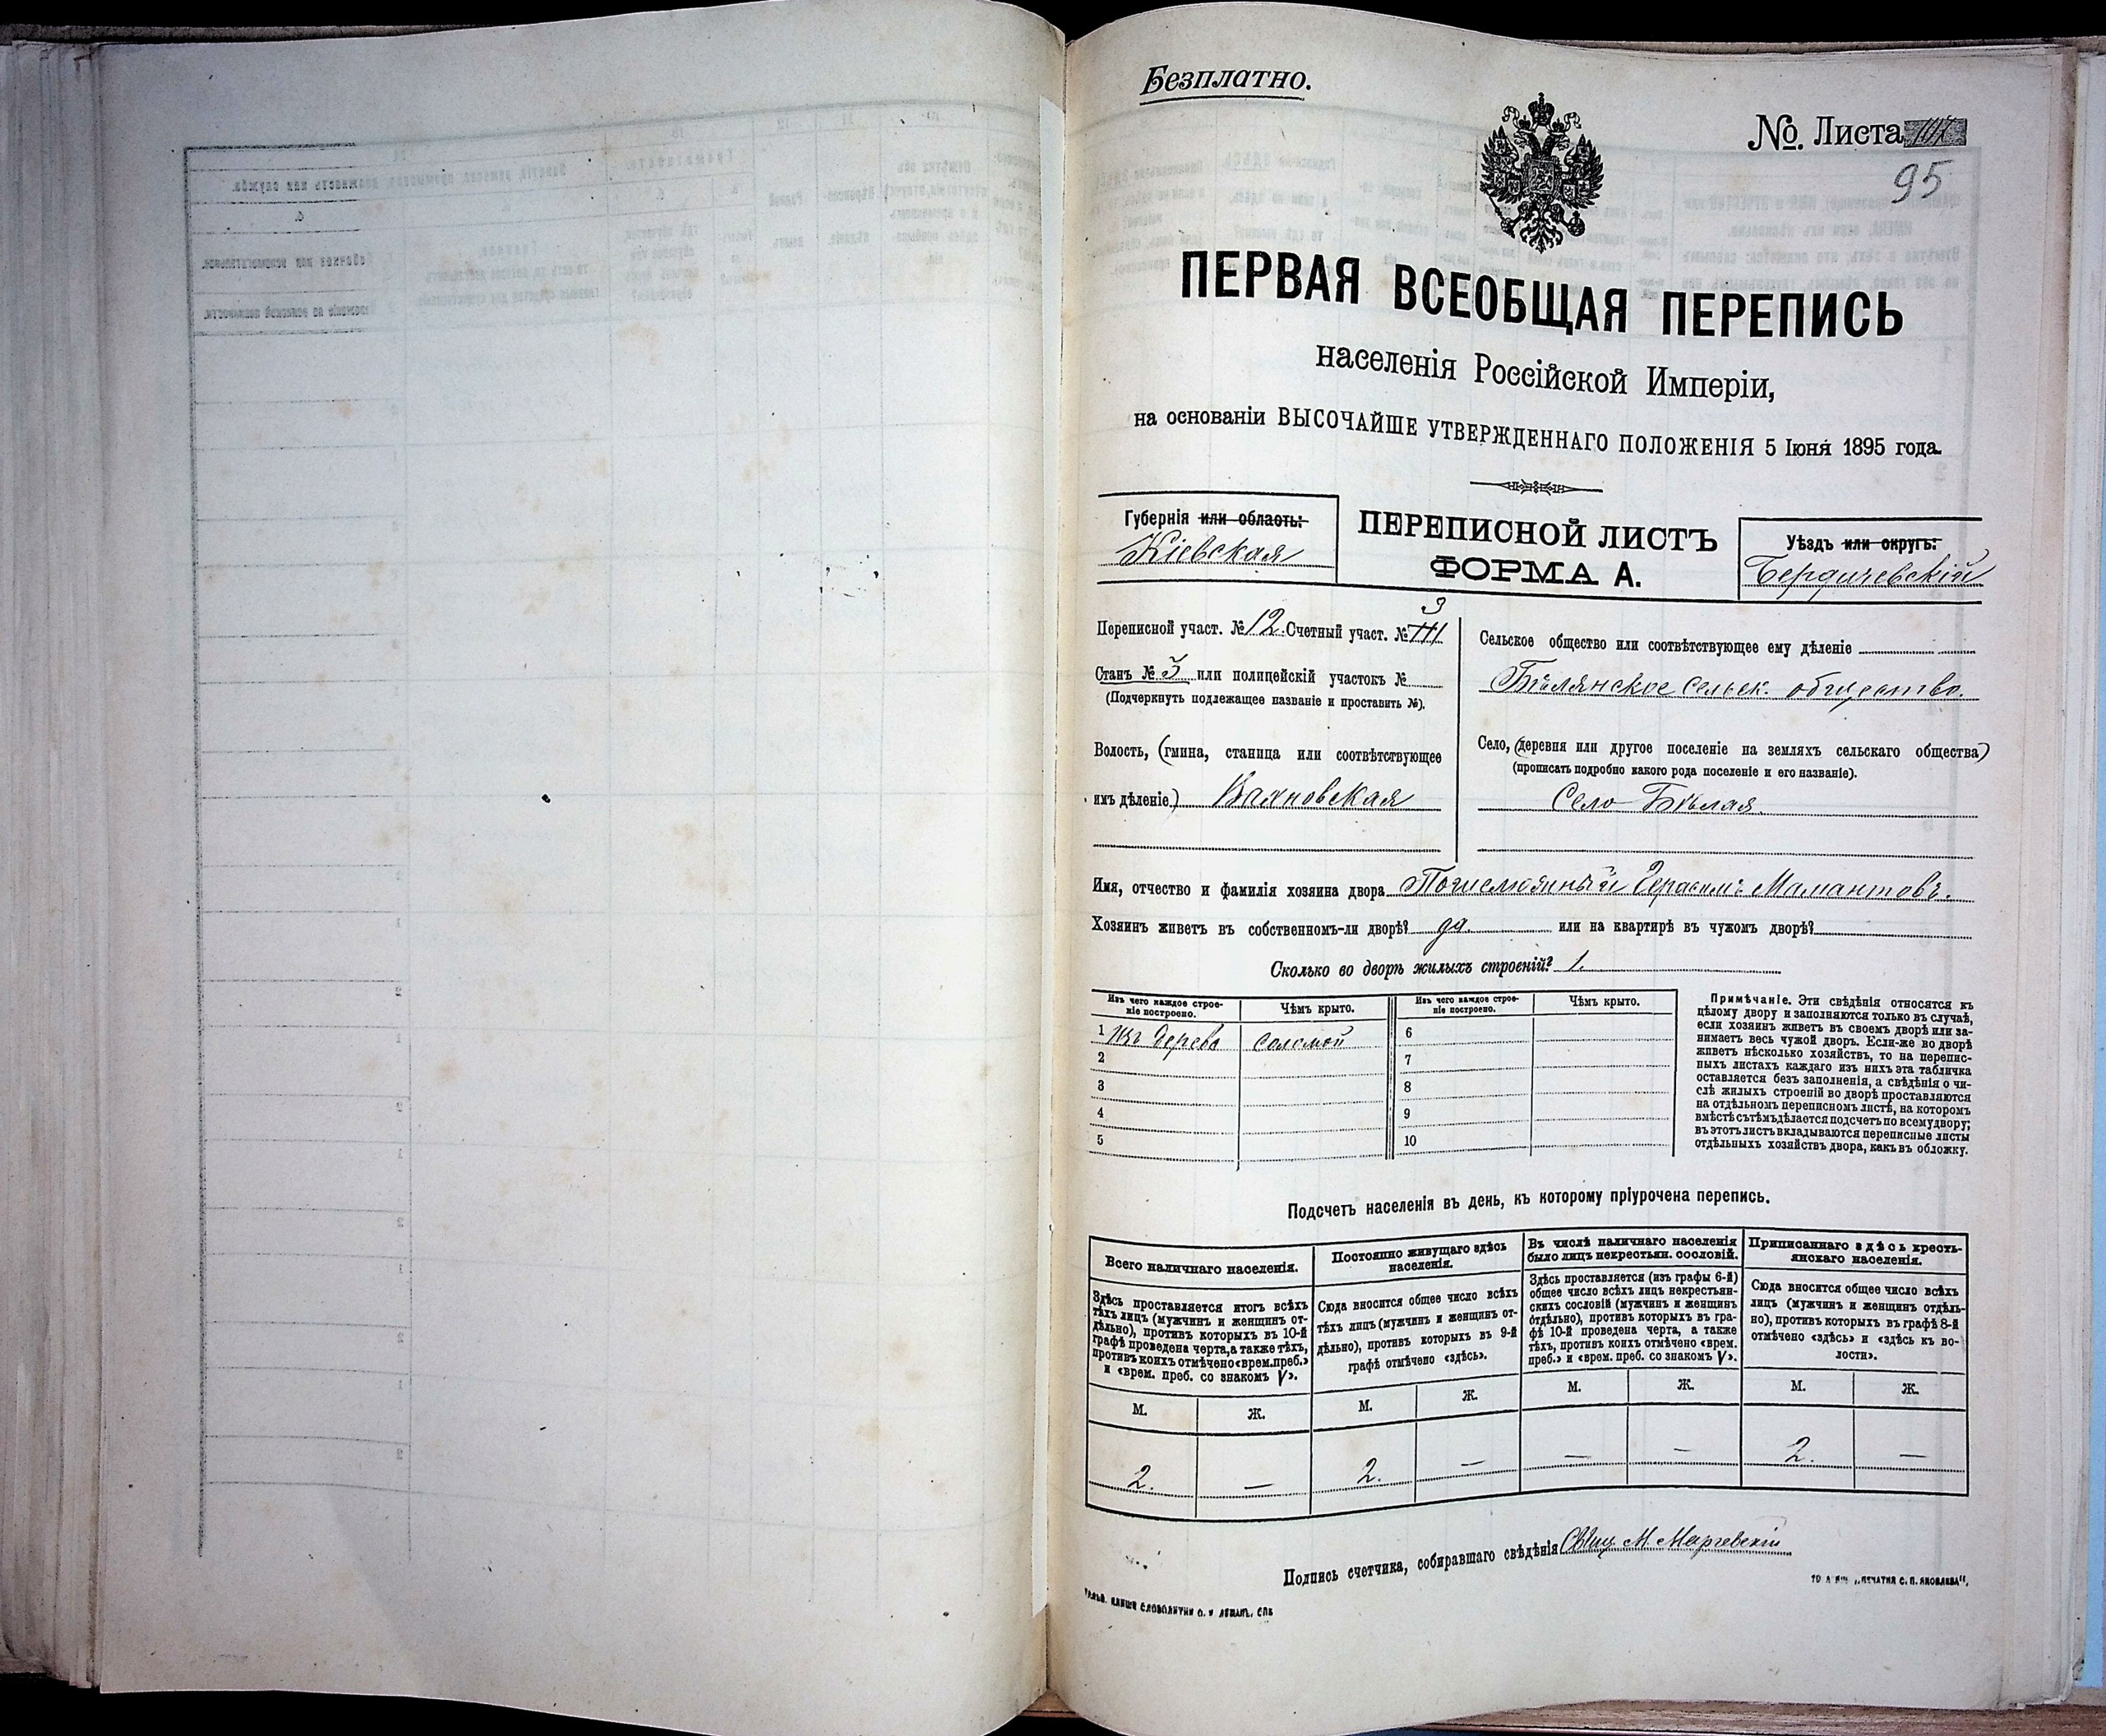 Безплатно.
№. Листа
95
ПЕРВАЯ ВСЕОБЩАЯ ПЕРЕПИСЬ
населенія Россійской Имперіи,
на основаніи ВЫСОЧАЙШЕ УТВЕРЖДЕННАГО ПОЛОЖЕНІЯ 5 Іюня 1895 года.
Губернія или область:
Кіевская
ПЕРЕПИСНОЙ ЛИСТЪ
ФОРМА А.
Уѣздъ или округъ:
Бердичевскій
3
Переписной участ. № 12. Счетный участ. № III
Станъ № 3 или полицейскій участокъ №
(Подчеркнуть подлежащее названіе и проставить №).
Волость, (гмина, станица или соотвѣтствующее
имъ дѣленіе.) Вахновская
Сельское общество или соотвѣтствующее ему дѣленіе
Бѣлянское сельск. общество.
Село, (деревня или другое поселеніе на земляхъ сельскаго общества)
(прописать подробно какого рода поселеніе и его названіе).
Село Бѣлая
Имя, отчество и фамилія хозяина двора Герасимъ Мамантовъ.
Хозяинъ живетъ въ собственномъ-ли дворѣ? да. или на квартирѣ въ чужомъ дворѣ?
Сколько во дворѣ жилыхъ строеній? 1.
Изъ чего каждое строе-
ніе построено.
Чѣмъ крыто.
Изъ чего каждое строе-
ніе построено.
Чѣмъ крыто.
1 Изъ дерева соломой 6
2 7
3 8
4 9
5 10
Примѣчаніе. Эти свѣдѣнія относятся къ
цѣлому двору и заполняются только въ случаѣ,
если хозяинъ живетъ въ своемъ дворѣ или за-
нимаетъ весь чужой дворъ. Если-же во дворѣ
живетъ нѣсколько хозяйствъ, то на перепис-
ныхъ листахъ каждаго изъ нихъ эта табличка
оставляется безъ заполненія, а свѣдѣнія о чи-
слѣ жилыхъ строеній во дворѣ проставляются
на отдѣльномъ переписномъ листѣ, на которомъ
вмѣстѣ съ тѣмъ дѣлается подсчетъ по всему двору;
въ этотъ листъ вкладываются переписные листы
отдѣльныхъ хозяйствъ двора, какъ въ обложку.
Подсчетъ населенія въ день, къ которому пріурочена перепись.
Всего наличнаго населенія.
Здѣсь проставляется итогъ всѣхъ
тѣхъ лицъ (мужчинъ и женщинъ от-
дѣльно), противъ которыхъ въ 10-й
графѣ проведена черта, а также тѣхъ,
противъ коихъ отмѣчено «врем. преб.»
и «врем. преб. со знакомъ V».
Постоянно живущаго здѣсь
населенія.
Сюда вносится общее число всѣхъ
тѣхъ лицъ (мужчинъ и женщинъ от-
дѣльно), противъ которыхъ въ 9-й
графѣ отмѣчено «здѣсь».
Въ числѣ наличнаго населенія
было лицъ некрестьян. сословій.
Здѣсь проставляется (изъ графы 6-й)
общее число всѣхъ лицъ некрестьян-
скихъ сословій (мужчинъ и женщинъ
отдѣльно), противъ которыхъ въ гра-
фѣ 10-й проведена черта, а также
тѣхъ, противъ коихъ отмѣчено «врем.
преб.» и «врем. преб. со знакомъ V».
Приписаннаго здѣсь кресть-
янскаго населенія.
Сюда вносится общее число всѣхъ
лицъ (мужчинъ и женщинъ отдѣль-
но), противъ которыхъ въ графѣ 8-й
отмѣчено «здѣсь» и «здѣсь къ во-
лости».
М. Ж. М. Ж. М. Ж. М. Ж.
2. — 2. — — — 2. —
Подпись счетчика, собиравшаго свѣдѣнія